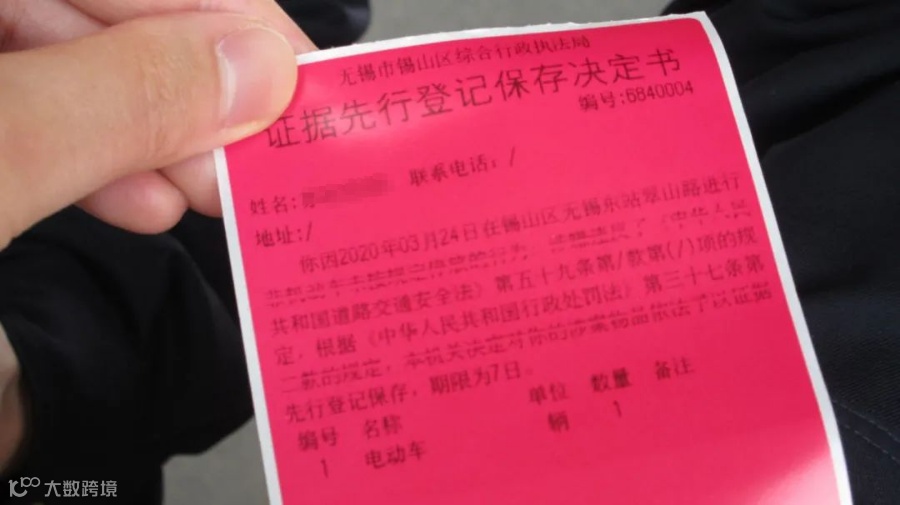 无锡市锡山区综合行政执法局
证据先行登记保存决定书
编号:6840004
姓名: 联系电话:/
地址:/
你因2020年03月24日在锡山区无锡东站翠山路进行
非机动车未按规定停放的行为，涉嫌违反了《中华人民
共和国道路交通安全法》第五十九条第/款第(/)项的规
定，根据《中华人民共和国行政处罚法》第三十七条第
二款的规定，本机关决定对你的涉案物品依法予以证据
先行登记保存，期限为7日。
编号 名称 单位 数量 备注
1 电动车 辆 1
大数跨境